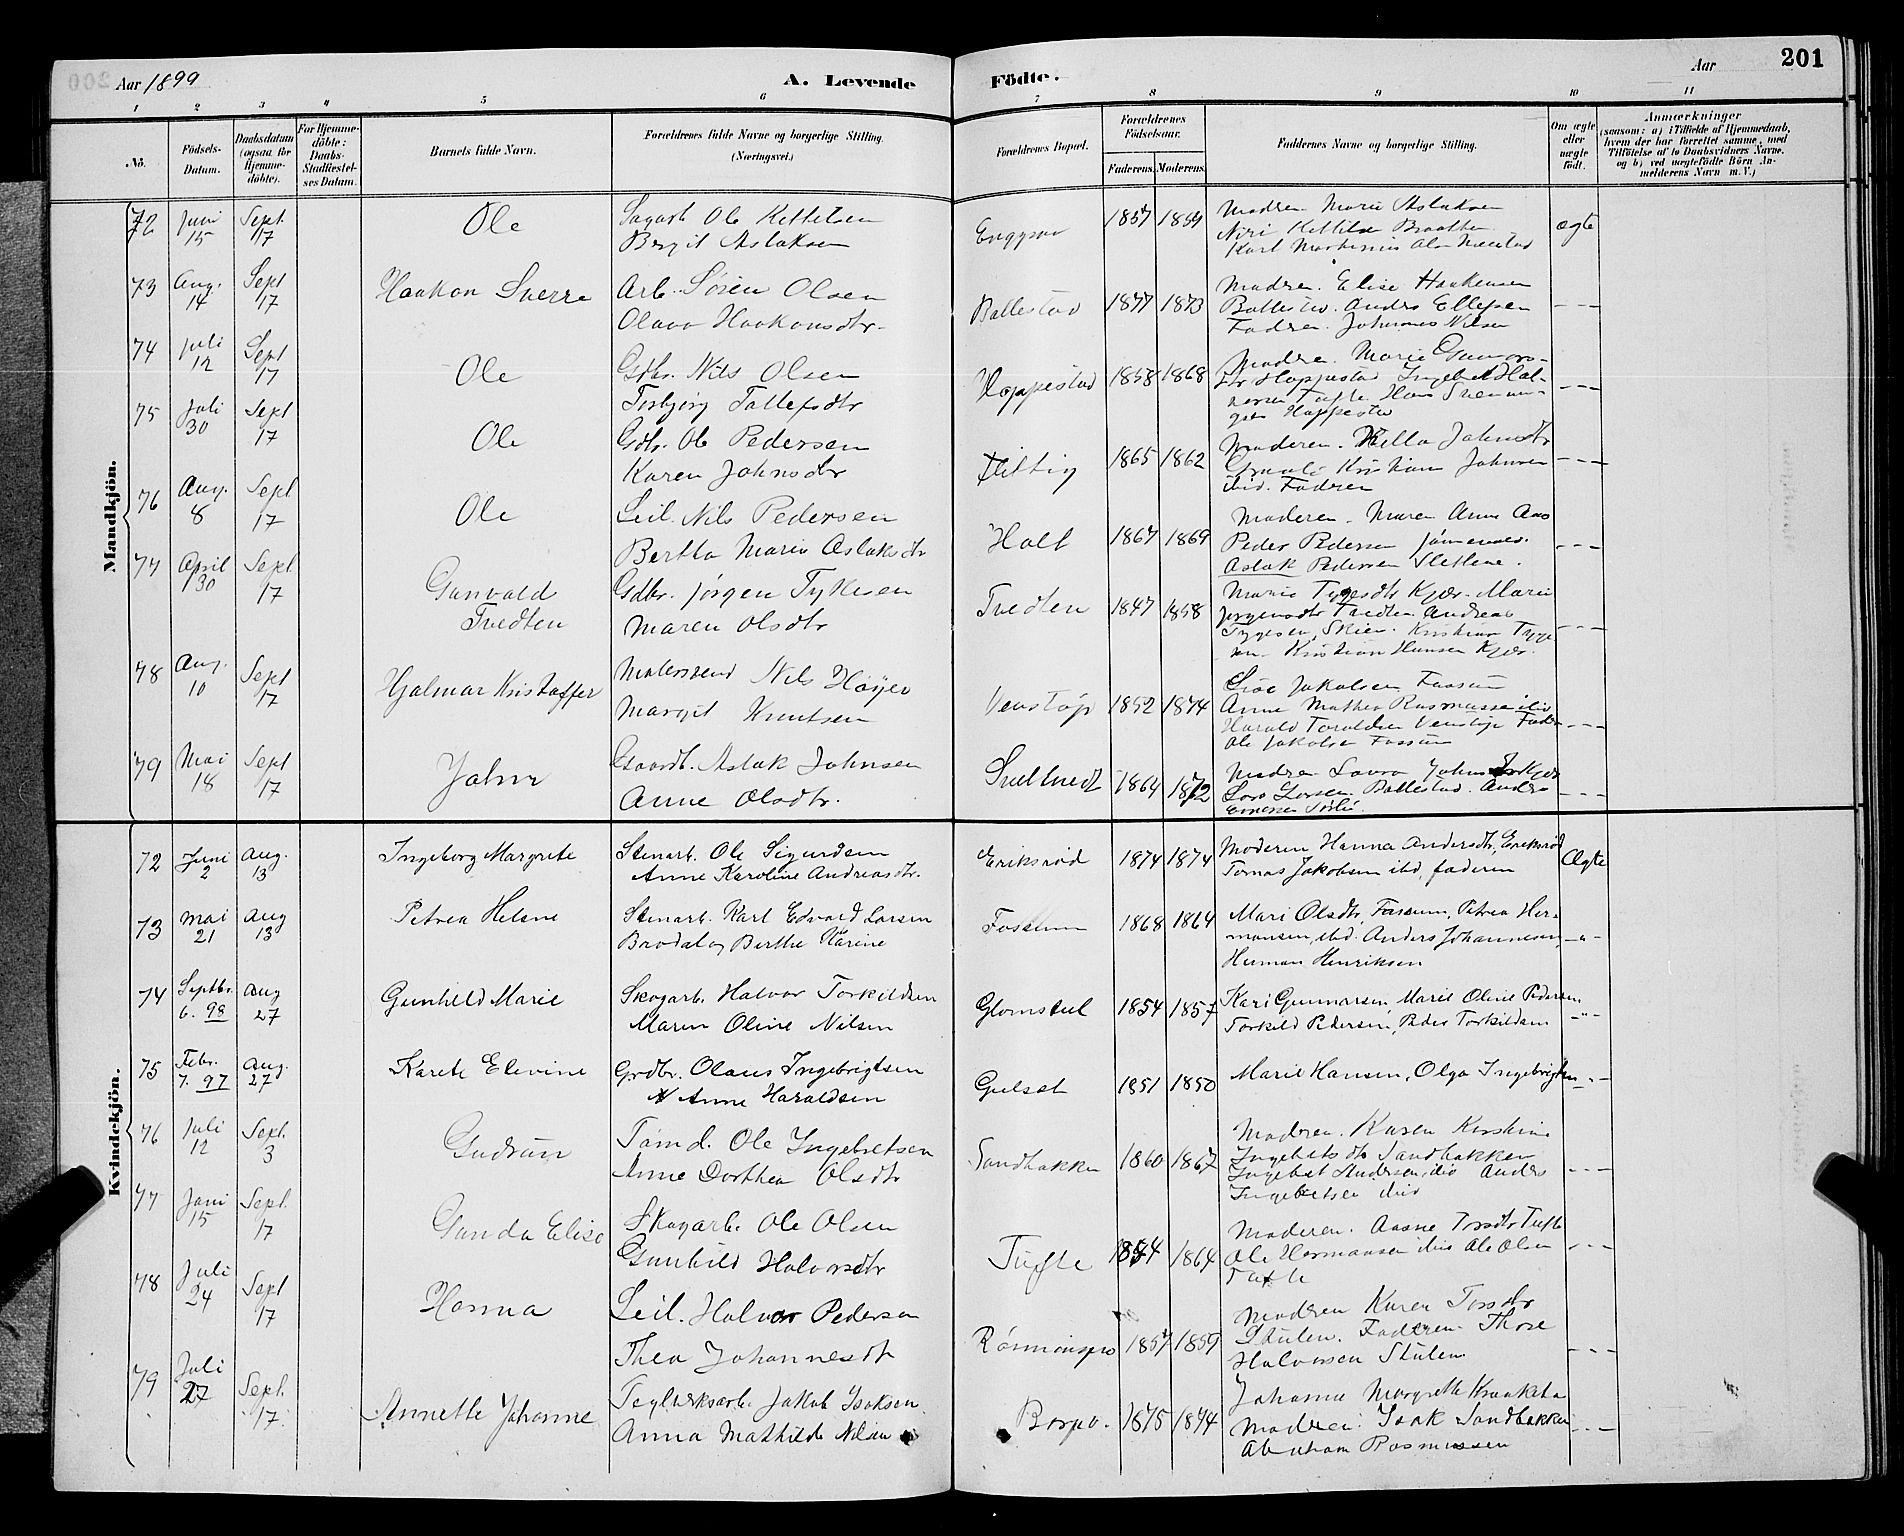 Aar 1899
A. Levende
Födte.
Aar
201
1 2 3 4 5 6 7 8 9 10 11
No.
Födsels-Datum.
Daabsdatum (ogsaa for Hjemme-döbte).
For Hjemme-döbte: Daabs-Stadfæstel-ses Datum.
Barnets fulde Navn.
Forældrenes fulde Navne og borgerlige Stilling. (Næringsvei.)
Forældrenes Bopæl.
Forældrenes Födselsaar.
Faderens. Moderens.
Faddernes Navne og borgerlige Stilling.
Om ægte eller uægte födt.
Anmærkninger
(saasom: a) i Tilfælde af Hjemmedaab, hvem der har forrettet samme, med Tilföielse af to Daabsvidners Navne. og b) ved uægtefödte Börn An-melderens Navn m. V.)
Mandkjön.
72 Juni 15 Sept. 17 Ole
Ole Kettilsen
Bergit Aslaksen
1857 1859
Madren. Marie Aslaksen
Kettilsen Braatten
Karl Martinius
ægte
73 Aug. 14 Sept 17 Haakon Sverre
Arb. Sören Olsen
Olava Haakonsdtr.
Ballestad 1877 1873
Madren. Elise Haakensen
Ballestad. Anders Ellefsen
Fadren. Johannes Nilsen
74 Juli 12 Sept 17 Ole
Gdbr. Nils Olsen
Torbjørg Tollefsdtr
Hoppestad 1858 1868
Madren. Marie
Hoppestad Ingebret Hal-
vorsen Tufte Hans
Hoppestad
75 Juli 30 Sept 17 Ole
Gdbr. Ole Pedersen
Karen Johnsdtr
1865 1862
Moderen. Johnsdtr
Kristian Johnsen
ibid. Fadren
76 Aug. 8 Sept 17 Ole
Leil. Nils Pedersen
Bertha Marie Aslaksdtr
Holt 1867 1869
Moderen. Maren Anne Aas
Peder Pedersen
Aslak Pedersen Slettene.
77 April 30 Sept 17 Gunvald Tvedten
Gdbr. Jørgen Tykesen
Maren Olsdtr
Tvedten 1847 1858
Marie Tygesdtr Kjær. Marie
Jørgensdtr Tvedten Andreas
Tygesen, Skien. Kristian Tyge
sen. Kristian Hansen Kjær.
78 Aug. 10 Sept 17 Hjalmar Kristoffer
Malersvend Nils Høyer
Margit Knutsen
Venstøp 1852 1874
Jakobsen Fossum
Anne Mathea Rasmussen ibid
Harald Toraldsen Venstøp Fadr
Ole Jakobsen Fossum
79 Mai 18 Sept 17 John
Gaardb. Aslak Johnsen
Anne Olsdtr.
1864 1872
Madren Laura Johns
Lars Larsen Ballestad. Anders
Kvindekjön.
72 Juni 2 Aug. 13 Ingeborg Margrete
Stenarb. Ole Sigurdsen
Anne Karoline Andreasdtr.
Eriksrød 1874 1874
Moderen Hanna Andersdtr, Eriksrød
Tomas Jakobsen ibd, faderen
Ægte
73 Mai 21 Aug 13 Petrea Helene
Stenarb. Karl Edvard Larsen
Brodal og Berthe Karine
Fossum 1868 1864
Mari Olsdtr, Fossum, Petrea Her-
mansen, ibd. Anders Johannesen
Herman Henriksen
74 Septbr. 6. 98 Aug 27 Gunhild Marie
Skogarb. Halvor Torkildsen
Maren Oline Nilsen
Glomstul 1854 1857
Kari Gunnarsen, Marie Oline Pedersen
Torkild Pedersen, Peder Torkildsen
75 Febr. 7. 97 Aug. 27 Karete Elevine
Grdbr. Olaus Ingebrigtsen
Anne Haraldsen
Gulset 1851 1850
Marie Hansen, Olga Ingebrigtsen
76 Juli 12 Sept. 3 Gudrun
Tømd. Ole Ingebretsen
Anne Dorthea Olsdtr
Sandbakken 1860 1867
Madren. Karen Kirstine
Ingebretsdtr Sandbakken
Ingebret Andersen, ibid Anders
Ingebretsen ibid
77 Juni 15 Sept. 17 Gunda Elise
Skogarb. Ole Olsen
Gunhild Halvorsdtr
Tufte 1854 1864
Moderen. Aasne Torsdtr Tufte
Ole Hermansen ibid Ole Olsen
Tufte
78 Juli 24 Sept 17 Hanna
Leil. Halvor Pedersen
Thea Johannesdtr
1857 1859
Madren Karen Torsdtr
Stulen. Fadren. Thore
Halvorsen Stulen
79 Juli 27 Sept. 17. Annette Johanne
Teglverksarb. Jakob Isaksen
Anna Mathilde Nilsen
1875 1874
Johanne Margrethe
Madren Isak Sandbakken
Abraham Rasmussen